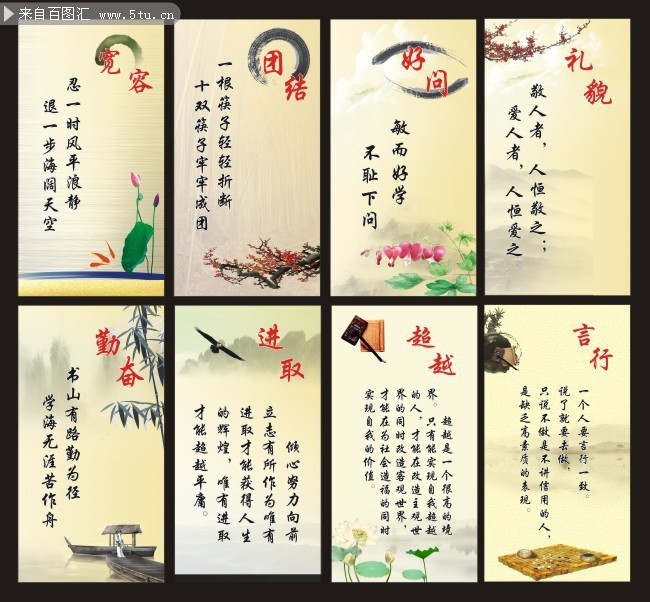 来自百图汇 www.5tu.cn
宽容
忍一时风平浪静
退一步海阔天空
团结
一根筷子轻轻折断
十双筷子牢牢成团
好问
敏而好学
不耻下问
礼貌
敬人者，人恒敬之；
爱人者，人恒爱之。
勤奋
书山有路勤为径
学海无涯苦作舟
进取
倾心努力向前
立志有所作为唯有
进取才能获得人生
的辉煌，唯有进取
才能超越平庸。
超越
超越是一个很高的境
界。只有能实现自我超越
的人，才能在改造主观世
界的同时改造客观世界，
才能在为社会造福的同时
实现自我的价值。
言行
一个人要言行一致。
说了就要去做，
只说不做是不讲信用的人，
是缺乏高素质的表现。